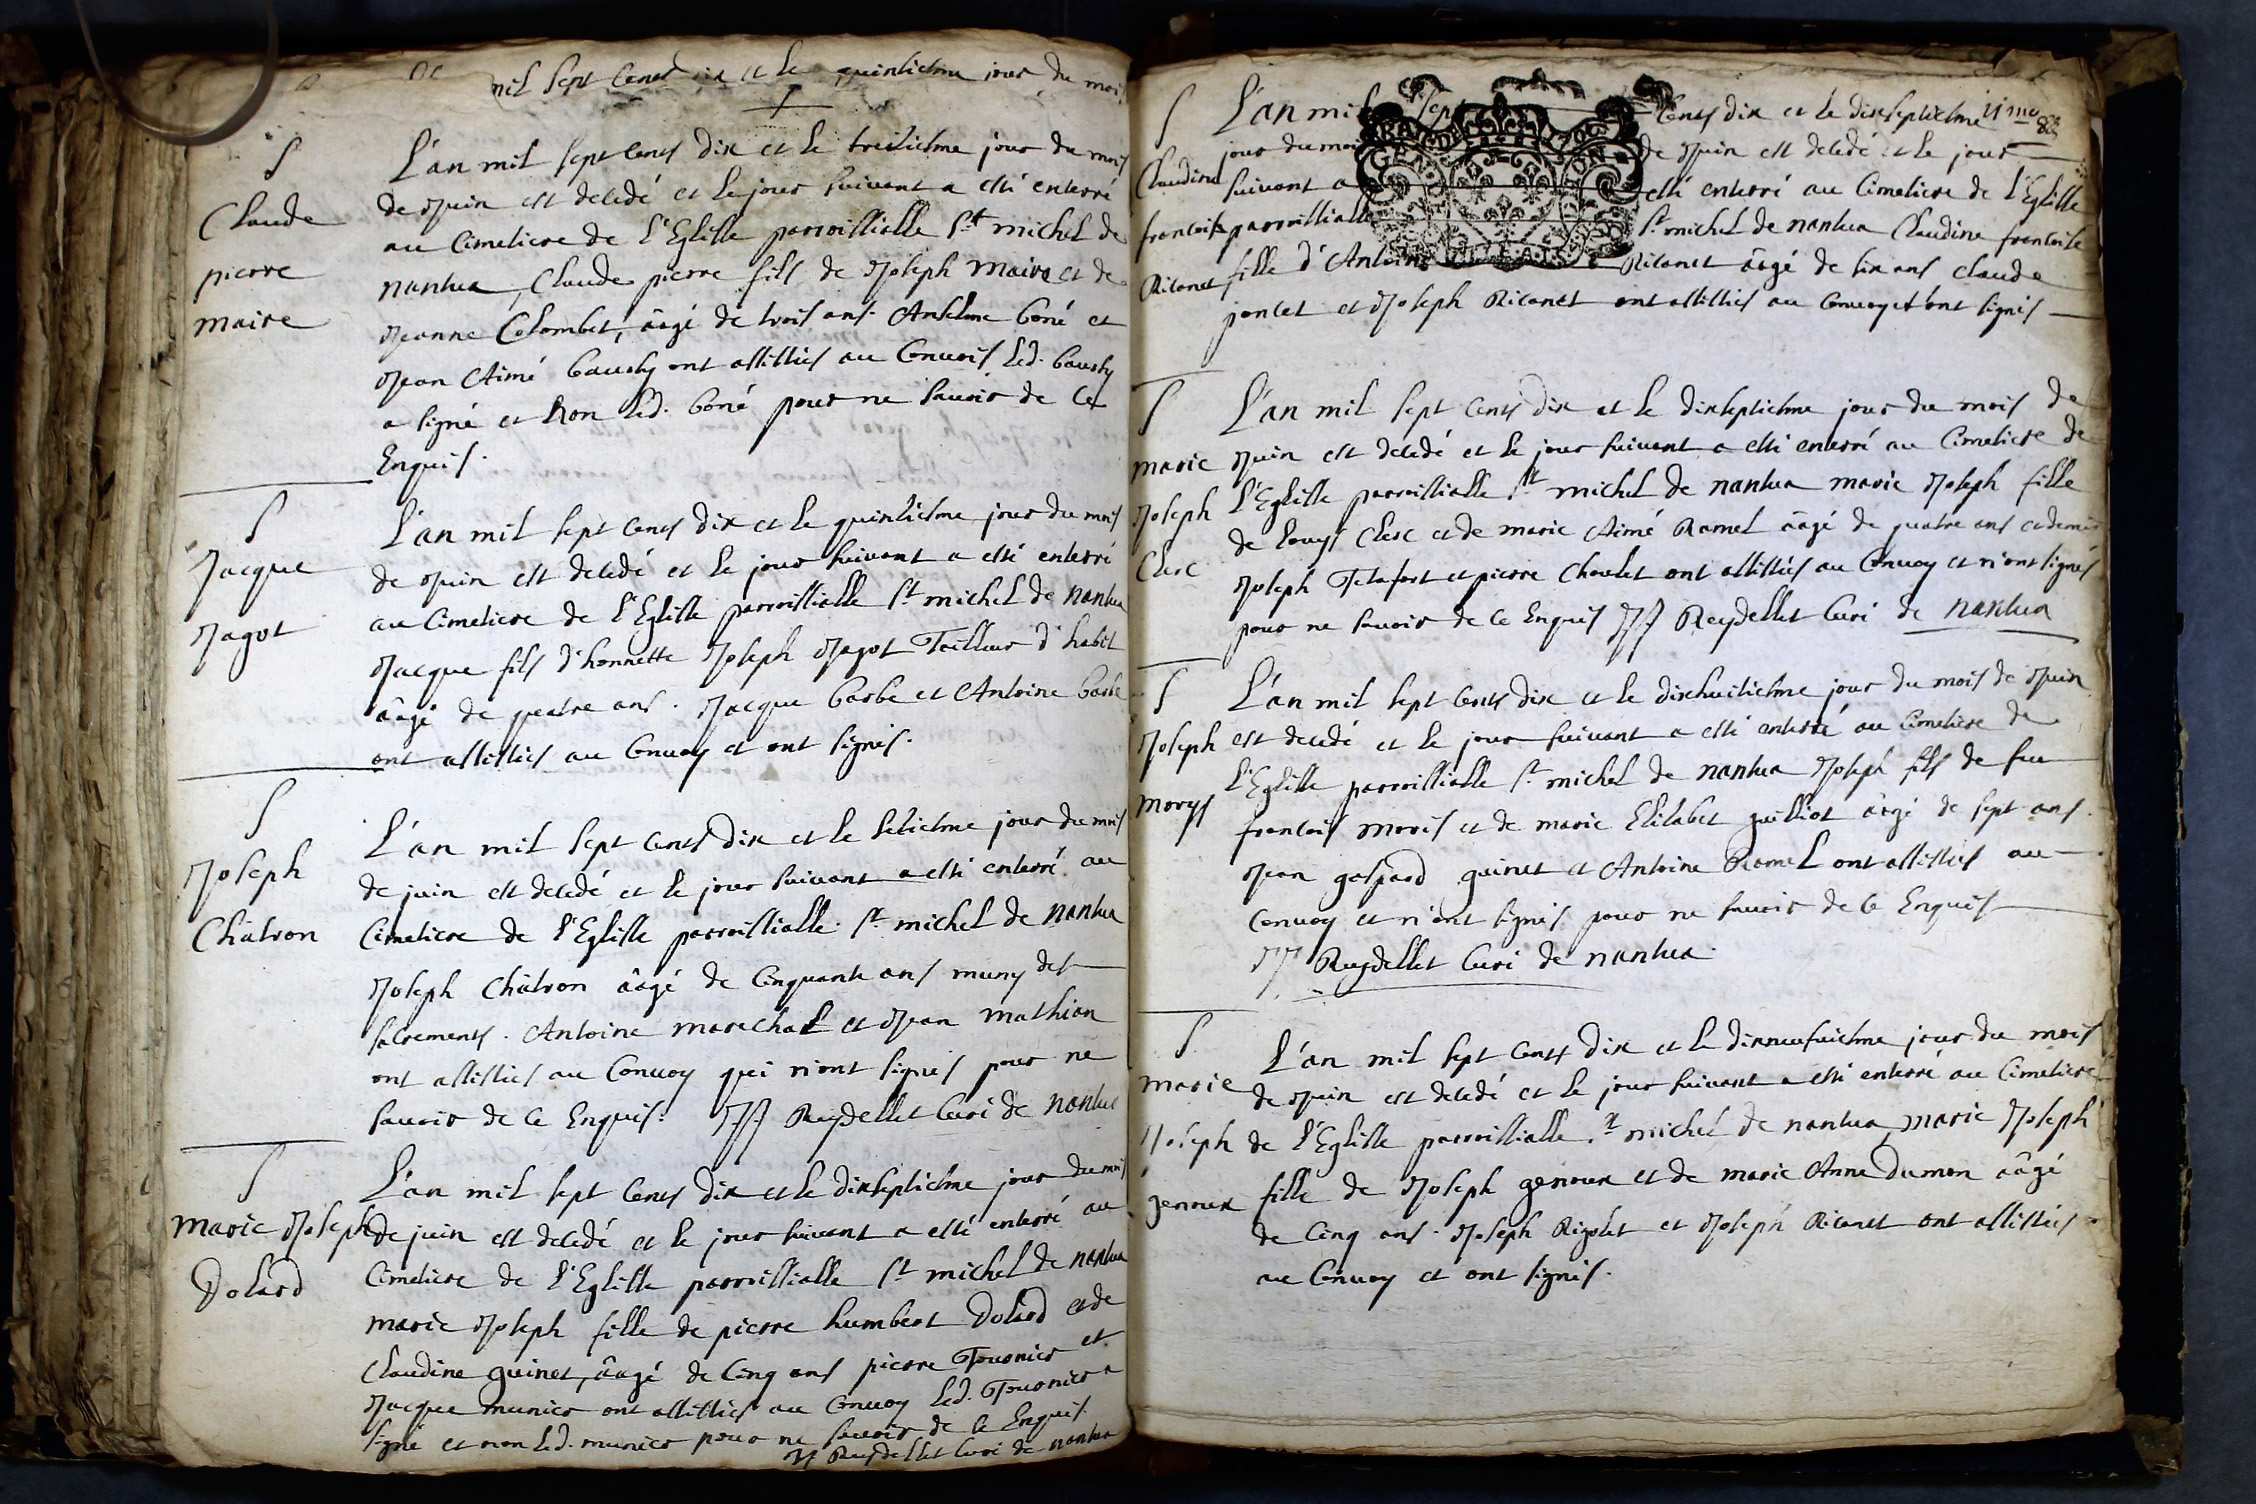 mil sept Cents dix et le quinziesme jour du mois
S
Claude
pierre
maire
L'an mil sept Cents dix et le treiziesme jour du mois
de Juin est decedé et le jour suivant a esté enterré
au Cimetiere de l'Eglisse parroissialle St michel de
nantua, Claude pierre fils de Joseph maire et de
Jeanne Colombet, âagé de trois ans. Anselme Goné et
Jean Aimé Gauthy ont assistés au Convois led. Gauthy
a signé et non led. Goné pour ne savoir de Ce
Enquis.
S
Jacque
Jagot
L'an mil sept Cents dix et le quinziesme jour du mois
de Juin est decedé et le jour suivant a esté enterré
au Cimetiere de l'Eglisse parroissialle St michel de nantua
Jacque fils d'honnette Joseph Jagot Tailleur d'habit
âagé de quatre ans. Jacque barbe et Antoine barbe
ont assistés au Convoy et ont signés.
S
Joseph
Châtron
L'an mil sept Cents dix et le seziesme jour du mois
de juin est decedé et le jour suivant a esté enterré au
Cimetiere de l'Eglisse parroissialle St michel de nantua
Joseph Châtron âagé de Cinquante ans muny des
sacrements. Antoine marechal et Jean mathian
ont assistés au Convoy qui n'ont signés pour ne
savoir de Ce Enquis. JJ Reydellet Curé de nantua
S
marie Joseph
Dolard
L'an mil sept Cents dix et le dixseptiesme jour du mois
de juin est decedé et le jour suivant a esté enterré au
Cimetiere de l'Eglisse parroissialle St michel de nantua
marie Joseph fille de pierre humbert Dolard et de
Claudine guinet, âagé de Cinq ans pierre Touonier et
Jacque munier ont assistés au Convoy led. Touonier a
signé et non led. munier pour ne savoir de Ce Enquis.
JJ Reydellet Curé de nantua
S
Claudine
francoise
Ricanet
L'an mil sept Cents dix et le dixseptiesme 11me
jour du mois de Juin est decedé et le jour
suivant a esté enterré au Cimetiere de l'Eglisse
parroissialle St michel de nantua Claudine francoise
fille d'Antoine Ricanet âagé de six ans Claude
poncet et Joseph Ricanet ont assistés au Convoy et ont signés
GEN DE
S
marie
Joseph
Clerc
L'an mil sept Cents dix et le dixseptiesme jour du mois de
Juin est decedé et le jour suivant a esté enterré au Cimetiere de
l'Eglisse parroissialle St michel de nantua marie Joseph fille
de Louys Clerc et de marie Aimé Ramel âagé de quatre ans et demis
Joseph Tetafort et pierre Choulet ont assistés au Convoy et n'ont signés
pour ne savoir de Ce Enquis JJ Reydellet Curé de nantua
S
Joseph
morys
L'an mil sept Cents dix et le dixhuitiesme jour du mois de Juin
est decedé et le jour suivant a esté enterré au Cimetiere de
l'Eglisse parroissialle St michel de nantua Joseph fils de feu
francois moris et de marie Elisabet guilliot âagé de sept ans.
Jean gaspard guinet et Antoine Ramel ont assistés au
Convoy et n'ont signés pour ne savoir de Ce Enquis
JJ Reydellet Curé de nantua.
S
marie
Joseph
genoux
L'an mil sept Cents dix et le dixneufuiesme jour du mois
de Juin est decedé et le jour suivant a esté enterré au Cimetiere
de l'Eglisse parroissialle St michel de nantua, marie Joseph
fille de Joseph genoux et de marie Anne Dumon âagé
de Cinq ans. Joseph Rigolet et Joseph Ricanet ont assistés
au Convoy et ont signés.